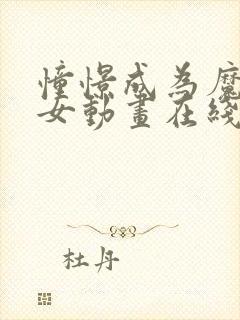 憧憬成為魔
女動畫在綫
杜丹